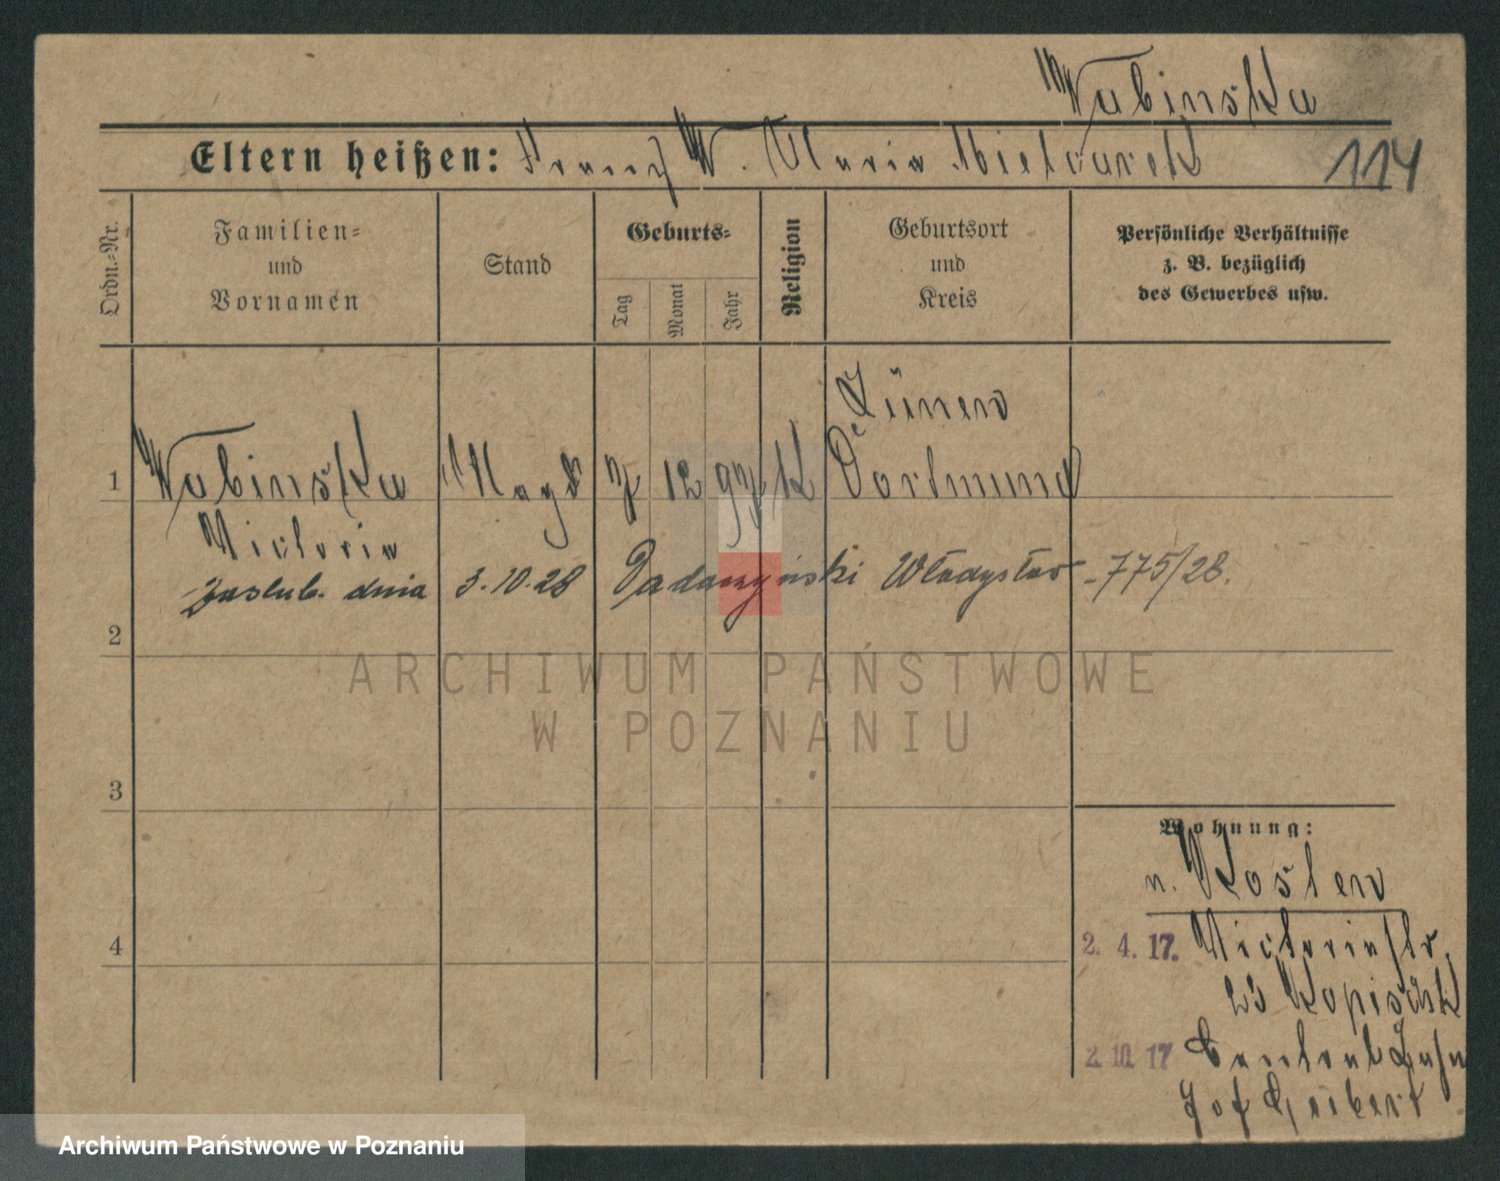 Wabinska
Eltern heißen: Franz W. Maria Mielcarek 114
Ordn.-Nr.
Familien-
und
Vornamen
Stand
Geburts-
Tag
Monat
Jahr
Religion
Geburtsort
und
Kreis
Persönliche Verhältnisse
z. B. bezüglich
des Gewerbes usw.
Lünen
1 Wabinska Magd 7 12 97 K Dortmund
Victoria
zaślub. dnia 3.10.28 Padaszyński Władysław - 775/28.
2
ARCHIWUM PAŃSTWOWE
W POZNANIU
3
Wohnung:
n. Kosten
4
2. 4. 17. Victoriastr.
23 Kopischk
2. 10. 17 Zentralbahn
hof Geibert
Archiwum Państwowe w Poznaniu